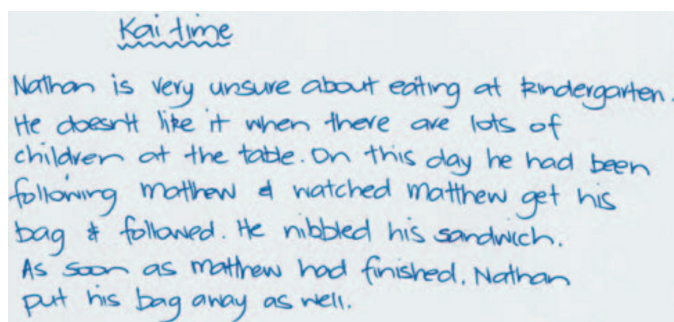 Kai time
Nathan is very unsure about eating at kindergarten.
He doesn't like it when there are lots of
children at the table. On this day he had been
following matthew & watched matthew get his
bag & followed. He nibbled his sandwich.
As soon as matthew had finished, Nathan
put his bag away as well.